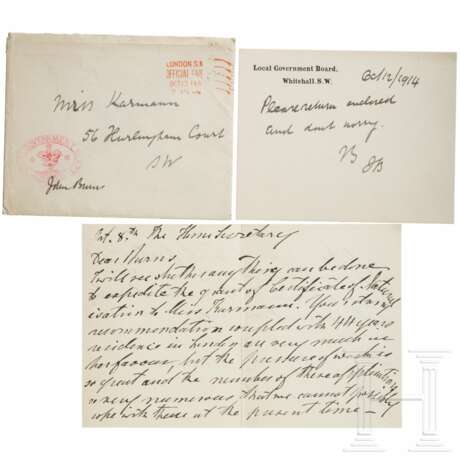 LONDON S.W.
OFFICIAL PAID
OCT 12
Miss Karmann
56 Hurlingham Court
SW
John Burns
Local Government Board,
Whitehall, S.W.
Oct 12/1914
Please return enclosed
and dont worry.
JB
Oct. 8th The Home Secretary
Dear Burns
I will see whether anything can be done
to expedite the grant of Certificate of Natural
ization to Miss Karmann. Your strong
recommendation coupled with 44 years
residence in London are very much in
her favour, but the pressure of work is
so great and the number of these applications
so very numerous that we cannot possibly
cope with these at the present time —